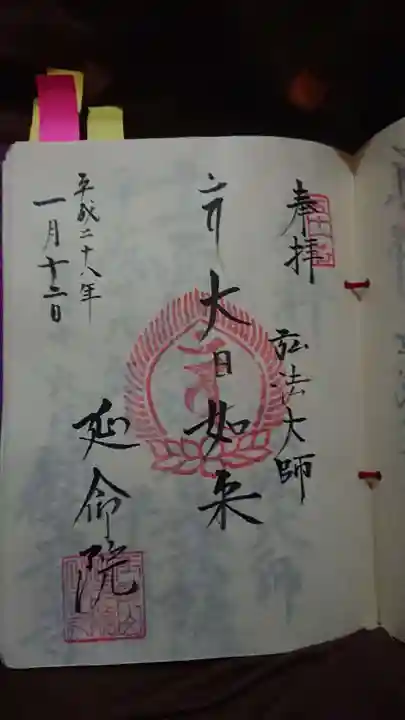 奉拝
弘法大師
大日如来
平成二十八年
一月十二日
延命院